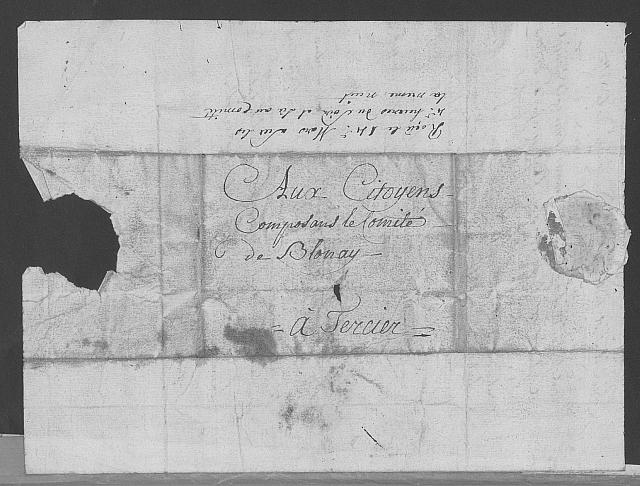 Aux Citoyens
Composans le Comité
de Blonay
= à Tercier =
Reçu le 1 Mars les
heures du Soir et lu au Comité
la meme nuit